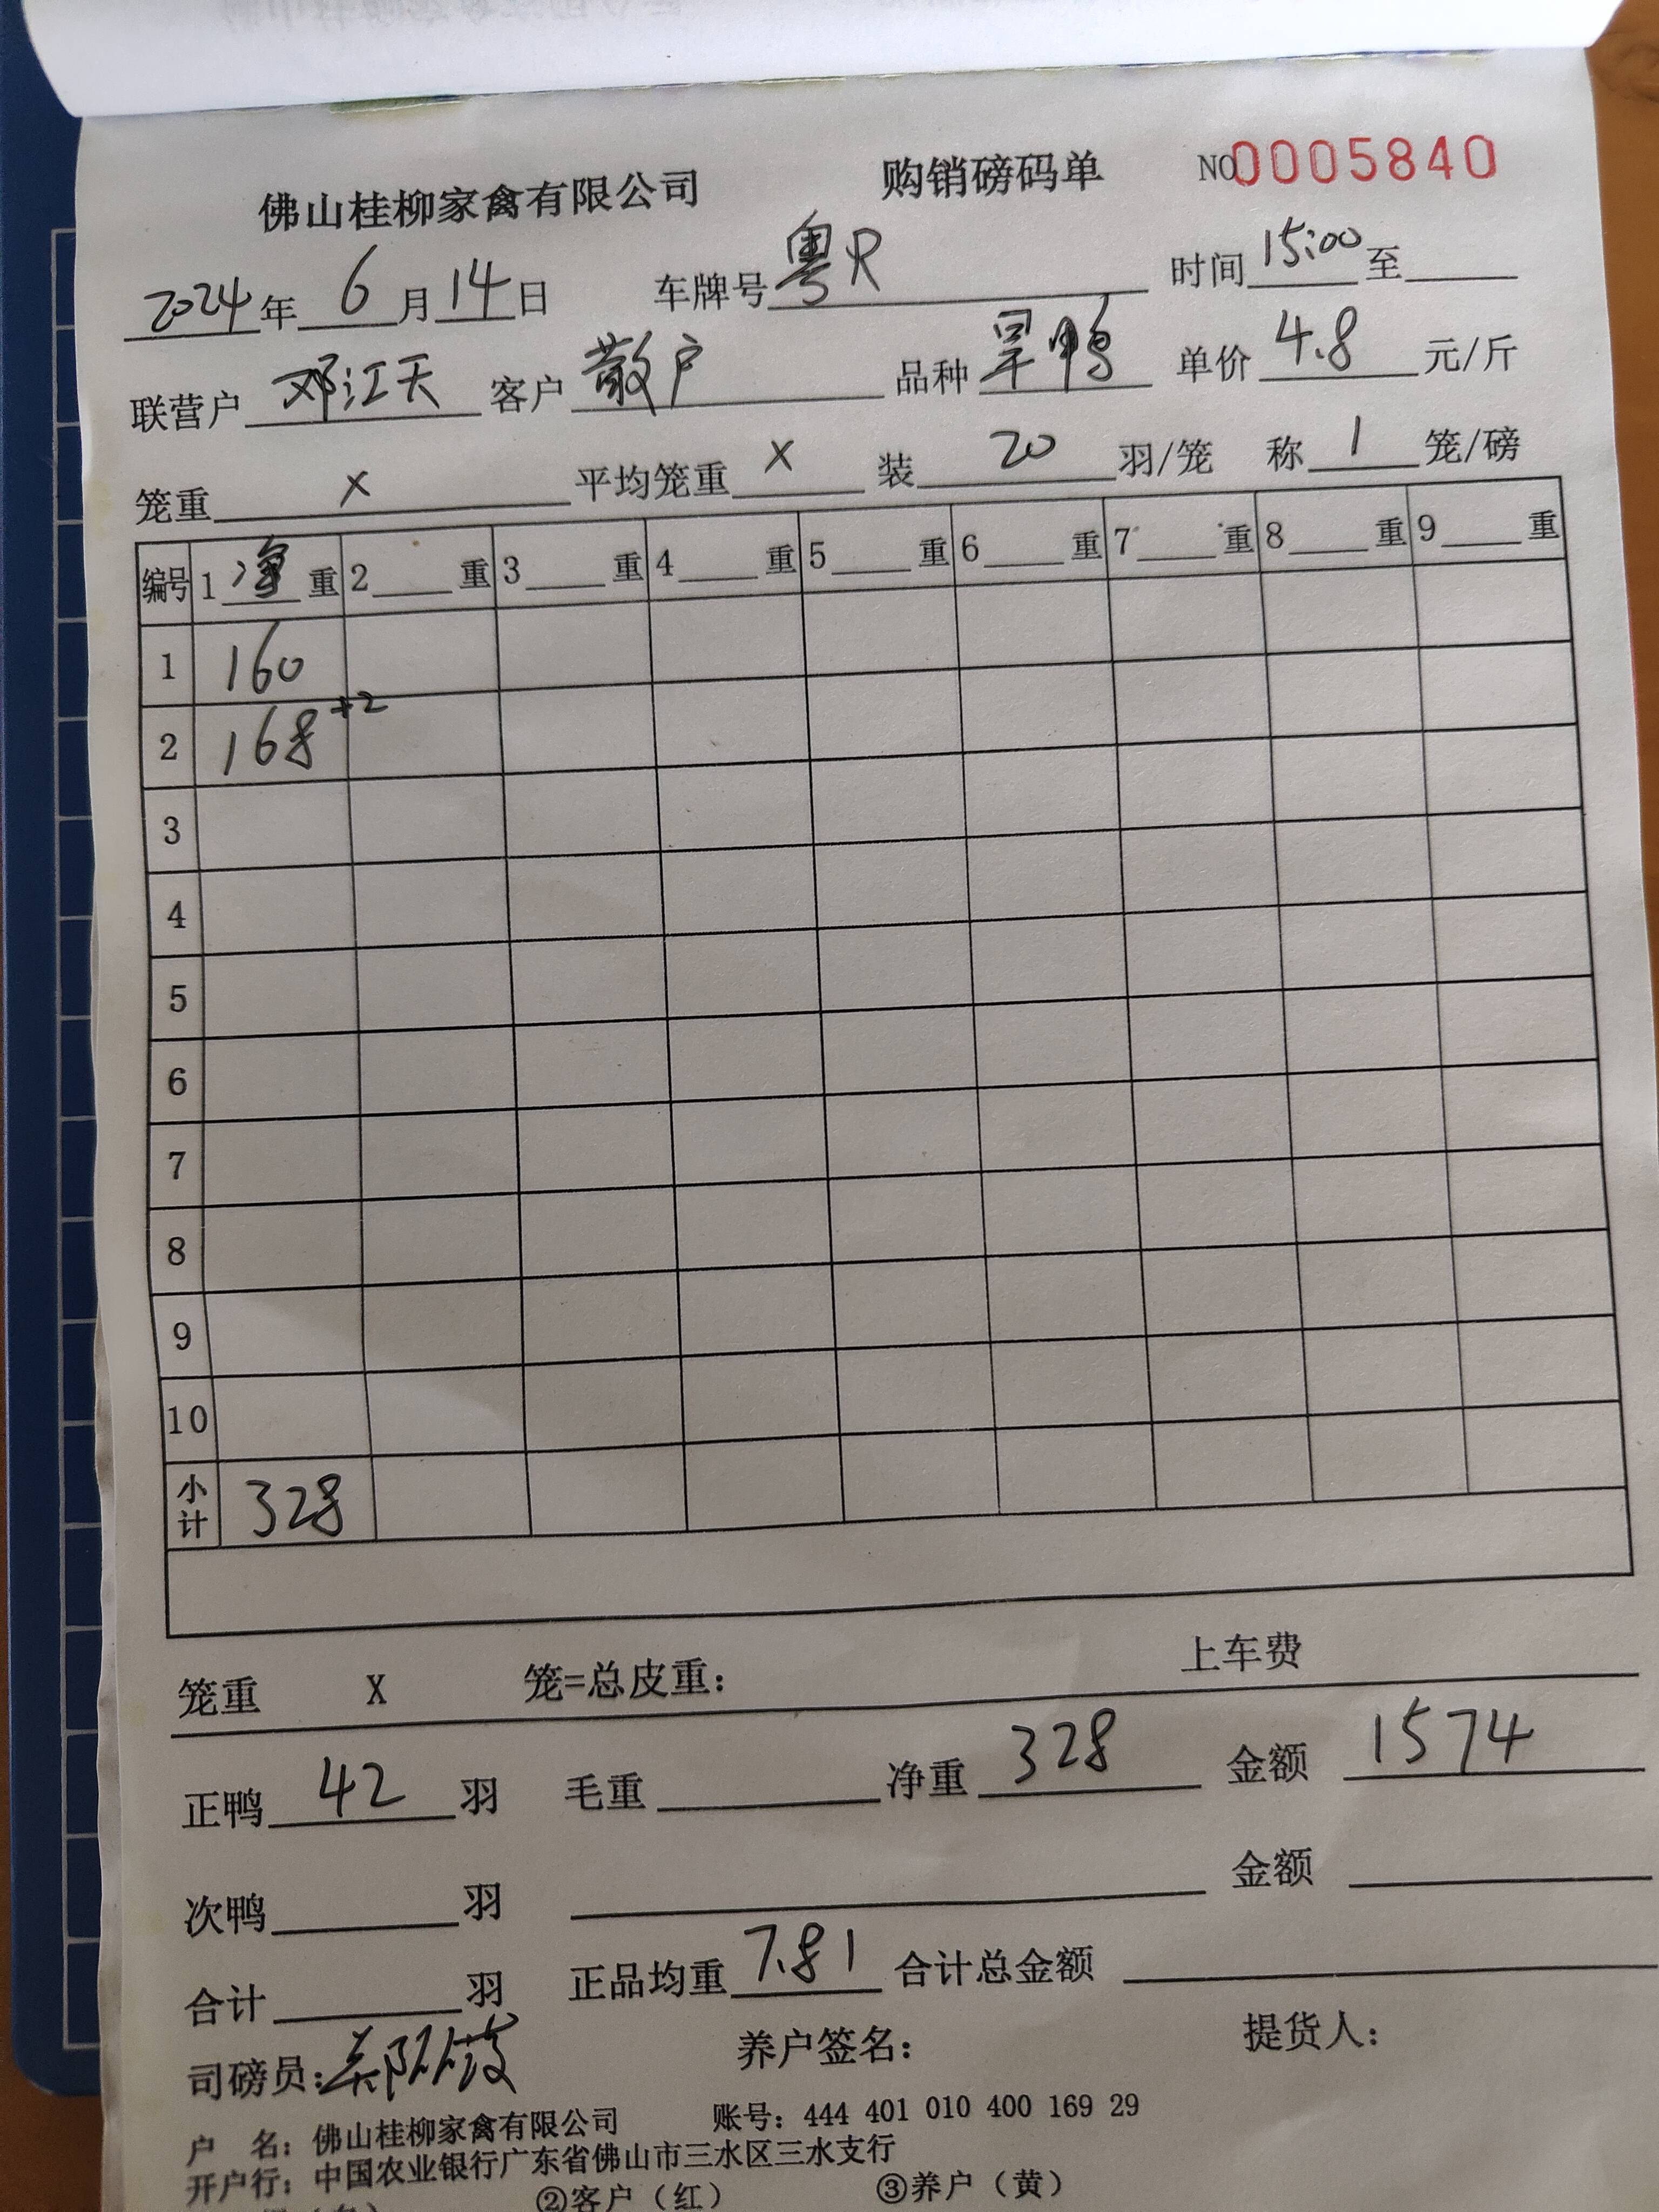 佛山桂柳家禽有限公司 购销磅码单 NO0005840
2024年6月14日 车牌号粤R 时间15:00至
联营户 邓江天 客户 散户 品种 旱鸭 单价 4.8 元/斤
笼重 x 平均笼重 x 装 20 羽/笼 称 1 笼/磅
编号 1净重 2 重 3 重 4 重 5 重 6 重 7 重 8 重 9 重
1 160
2 168+2
3
4
5
6
7
8
9
10
小计 328
笼重 X 笼=总皮重: 上车费
正鸭 42 羽 毛重 净重 328 金额 1574
次鸭 羽 金额
合计 羽 正品均重 7.81 合计总金额
司磅员: 养户签名: 提货人:
户 名: 佛山桂柳家禽有限公司 账号: 444 401 010 400 169 29
开户行: 中国农业银行广东省佛山市三水区三水支行
②客户（红） ③养户（黄）